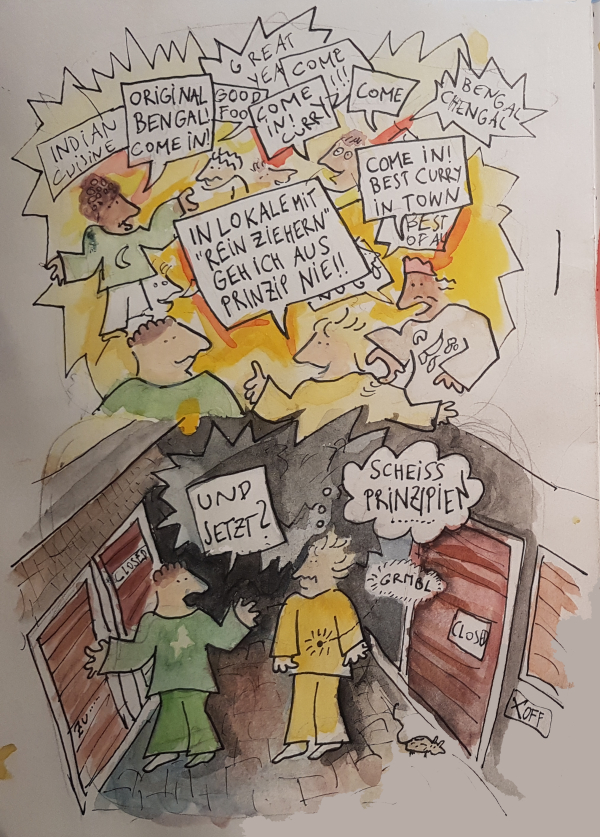 GREAT
YEA
COME
!!!
ORIGINAL
BENGAL!
COME IN!
GOOD
FOO
COME
IN!
CURRY
COME
BENGAL
CHENGAL
INDIAN
CUISINE
COME IN!
BEST CURRY
IN TOWN
BEST
OF AL
IN LOKALE MIT
"REIN ZIEHERN"
GEH ICH AUS
PRINZIP NIE!!
UND
JETZT?
SCHEISS
PRINZIPIEN
GRMBL
CLOSED
CLOSED
ZU....
OFF